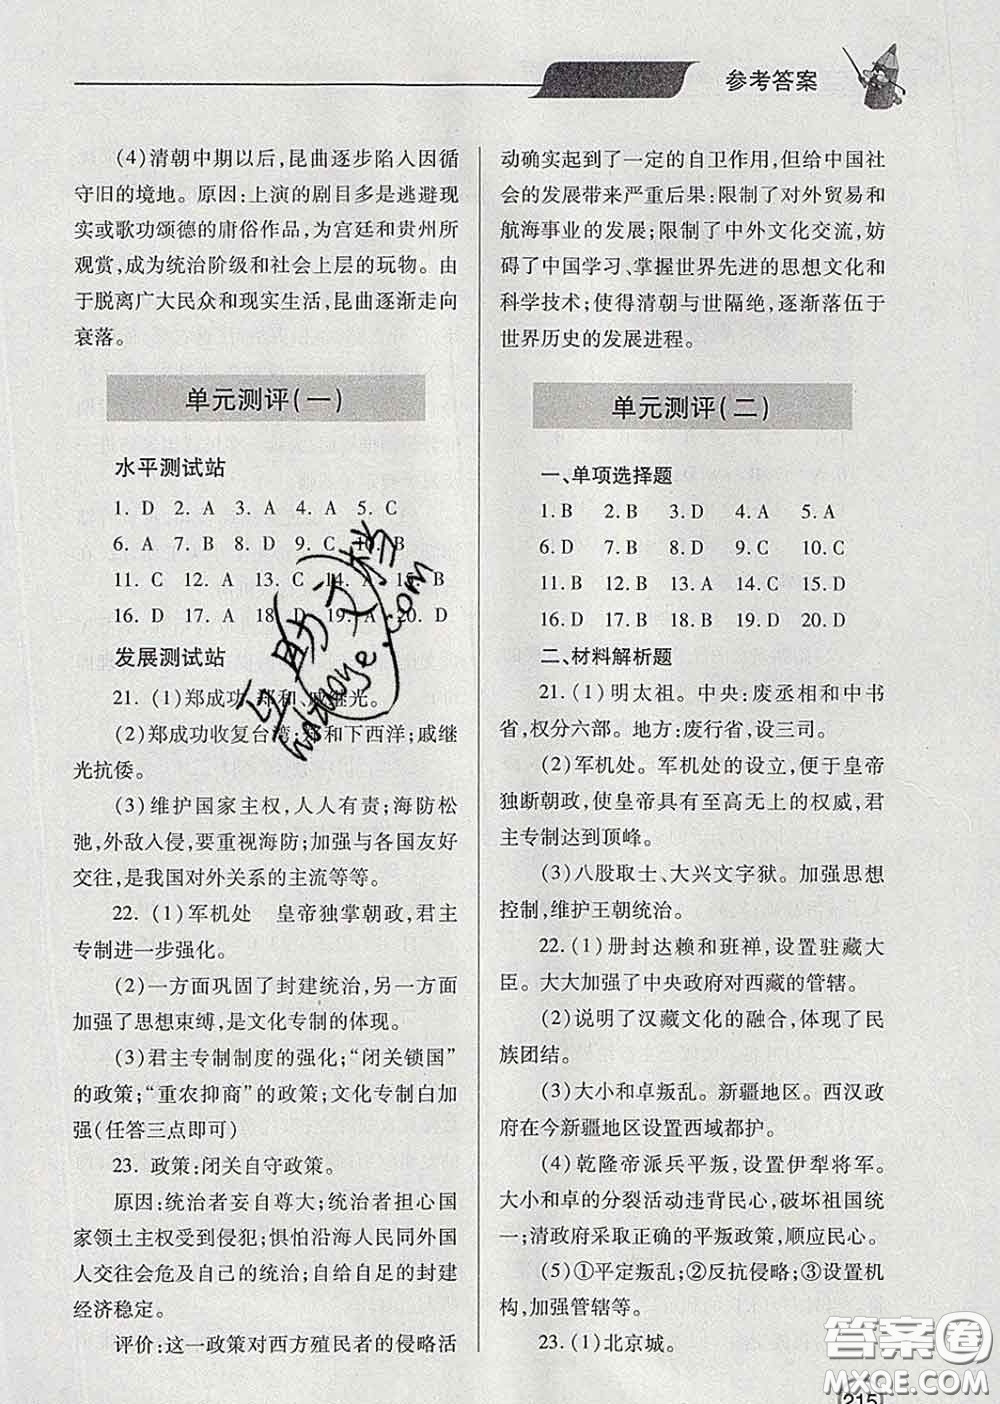 参考答案
(4)清朝中期以后,昆曲逐步陷入因循
守旧的境地。原因:上演的剧目多是逃避现
实或歌功颂德的庸俗作品,为宫廷和贵州所
观赏,成为统治阶级和社会上层的玩物。由
于脱离广大民众和现实生活,昆曲逐渐走向
衰落。
单元测评(一)
水平测试站
1. D 2. A 3. A 4. A 5. C
6. A 7. B 8. D 9. C 10. B
11. C 12. A 13. C 14. A 15. B
16. D 17. A 18. D 19. A 20. D
发展测试站
21. (1)郑成功、郑和、戚继光。
(2)郑成功收复台湾;郑和下西洋;戚继
光抗倭。
(3)维护国家主权,人人有责;海防松
弛,外敌入侵,要重视海防;加强与各国友好
交往,是我国对外关系的主流等等。
22. (1)军机处 皇帝独掌朝政,君主
专制进一步强化。
(2)一方面巩固了封建统治,另一方面
加强了思想束缚,是文化专制的体现。
(3)君主专制制度的强化;“闭关锁国”
的政策;“重农抑商”的政策;文化专制白加
强(任答三点即可)
23. 政策:闭关自守政策。
原因:统治者妄自尊大;统治者担心国
家领土主权受到侵犯;惧怕沿海人民同外国
人交往会危及自己的统治;自给自足的封建
经济稳定。
评价:这一政策对西方殖民者的侵略活
动确实起到了一定的自卫作用,但给中国社
会的发展带来严重后果:限制了对外贸易和
航海事业的发展;限制了中外文化交流,妨
碍了中国学习、掌握世界先进的思想文化和
科学技术;使得清朝与世隔绝,逐渐落伍于
世界历史的发展进程。
单元测评(二)
一、单项选择题
1. B 2. B 3. D 4. A 5. A
6. D 7. B 8. D 9. C 10. C
11. B 12. A 13. B 14. D 15. C
16. C 17. D 18. C 19. D 20. D
二、材料解析题
21. (1)明太祖。中央:废丞相和中书
省,权分六部。地方:废行省,设三司。
(2)军机处。军机处的设立,便于皇帝
独断朝政,使皇帝具有至高无上的权威,君
主专制达到顶峰。
(3)八股取士、大兴文字狱。加强思想
控制,维护王朝统治。
22. (1)册封达赖和班禅,设置驻藏大
臣。大大加强了中央政府对西藏的管辖。
(2)说明了汉藏文化的融合,体现了民
族团结。
(3)大小和卓叛乱。新疆地区。西汉政
府在今新疆地区设置西域都护。
(4)乾隆帝派兵平叛,设置伊犁将军。
大小和卓的分裂活动违背民心,破坏祖国统
一;清政府采取正确的平叛政策,顺应民心。
(5)①平定叛乱;②反抗侵略;③设置机
构,加强管辖等。
23. (1)北京城。
215
答案圈
MXQE.COM